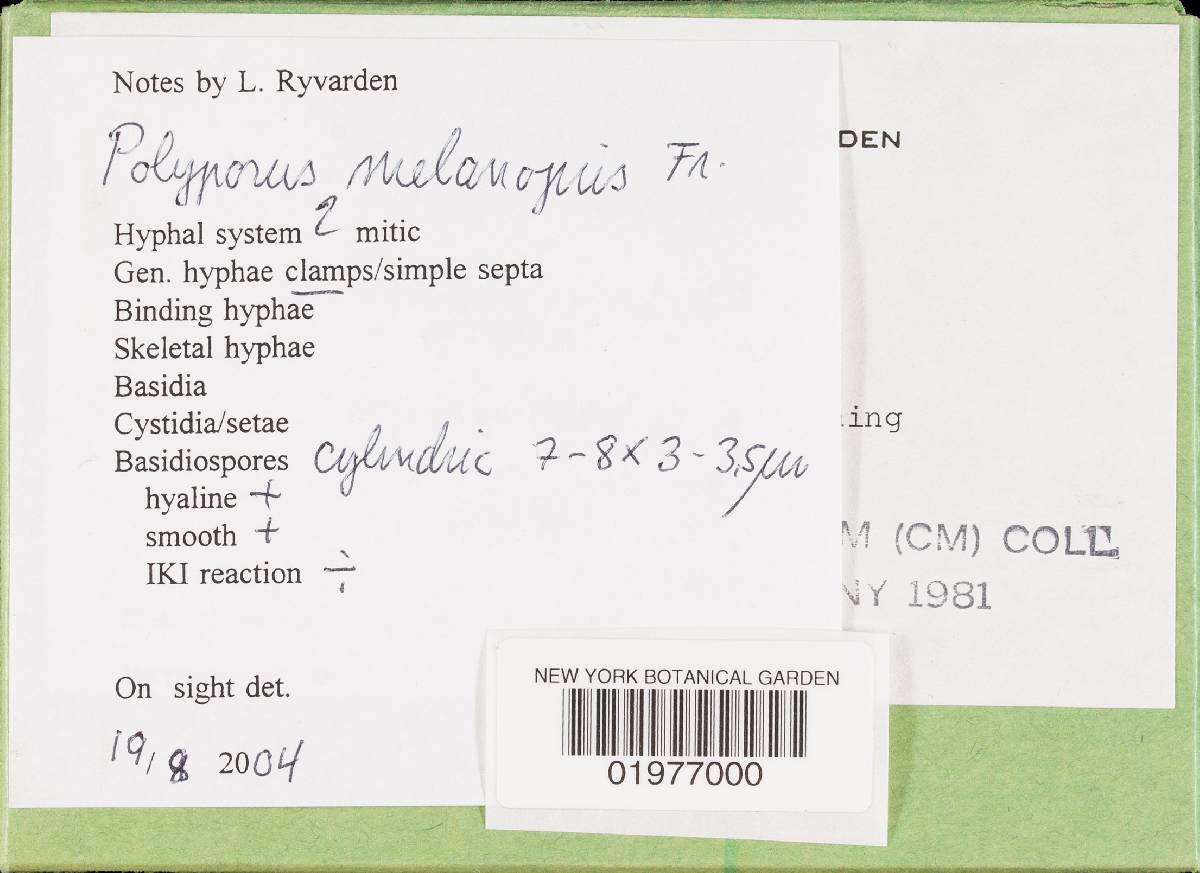 Notes by L. Ryvarden
Polyporus melanopus Fr.
Hyphal system 2 mitic
Gen. hyphae clamps/simple septa
Binding hyphae
Skeletal hyphae
Basidia
Cystidia/setae
Basidiospores cylindric 7-8 x 3-3,5 µm
hyaline +
smooth +
IKI reaction ÷
On sight det.
19/8 2004
DEN
ing
M (CM) COLL.
NY 1981
NEW YORK BOTANICAL GARDEN
01977000